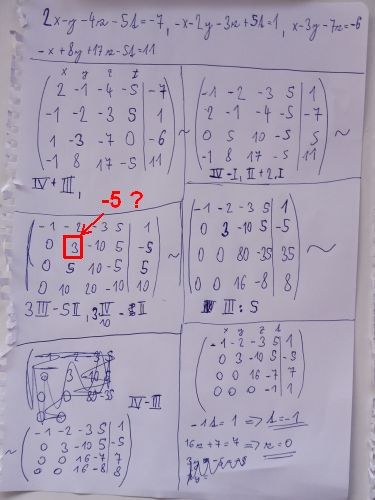 2x-y-4z-5t=-7, -x-2y-3z+5t=1, x-3y-7z=-6
-x+8y+17z-5t=11
x y z t
2 -1 -4 -5 | -7
-1 -2 -3 5 | 1
1 -3 -7 0 | -6
-1 8 17 -5 | 11
~
IV+III,
-1 -2 -3 5 | 1
2 -1 -4 -5 | -7
0 5 10 -5 | 5
-1 8 17 -5 | 11
~
IV-I, II+2.I
-5 ?
-1 -2 -3 5 | 1
0 3 -10 5 | -5
0 5 10 -5 | 5
0 10 20 -10 | 10
~
3III-5II,
-1 -2 -3 5 | 1
0 3 -10 5 | -5
0 0 80 -35 | 35
0 0 16 -8 | 8
~
III:5
IV-III
~
-1 -2 -3 5 | 1
0 3 -10 5 | -5
0 0 16 -7 | 7
0 0 16 -8 | 8
x y z t
-1 -2 -3 5 | 1
0 3 -10 5 | -5
0 0 16 -7 | 7
0 0 0 -1 | 1
-1t = 1 => t=-1
16z+7=7 => z=0